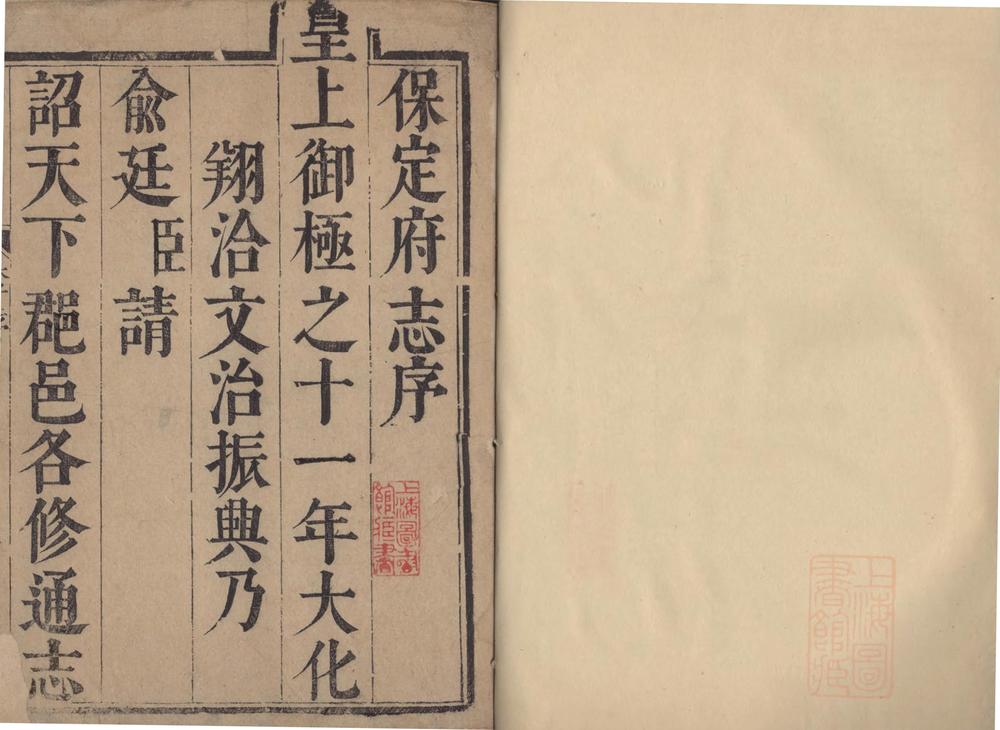 保定府志序
皇上御極之十一年大化
翔洽文治振典乃
兪廷臣請
詔天下郡邑各修通志
上海圖書
館藏書
上海圖
書館藏